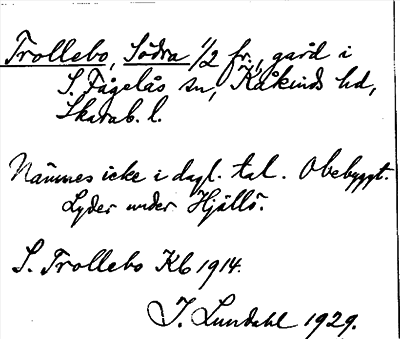 Trollebo, Södra 1/2 fr., gård i
S. Fågelås sn, Kåkinds hd,
Skarab. l.
Nämnes icke i dagl. tal. Obebyggt.
Lyder under Hjällö.
S. Trollebo Kb 1914.
J. Lundahl 1929.